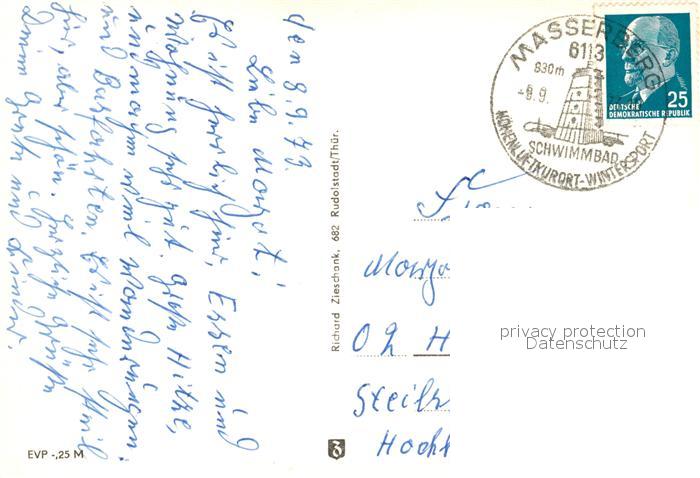 den 8.9.73
Liebe Margot!
Es ist herrlich hier, Essen und
Wohnung sehr gut. Große Hitze,
und machen viel Wanderungen
und Busfahrten. Es ist sehr steil
hier, aber schön. Herzliche Grüße
Deine Grete und Kinder.
EVP -,25 M
Richard Zieschank, 682 Rudolstadt/Thür.
MASSERBERG
6113
830m
-9.9.
SCHWIMMBAD
HÖHENLUFTKURORT-WINTERSPORT
25
DEUTSCHE
DEMOKRATISCHE REPUBLIK
privacy protection
Datenschutz